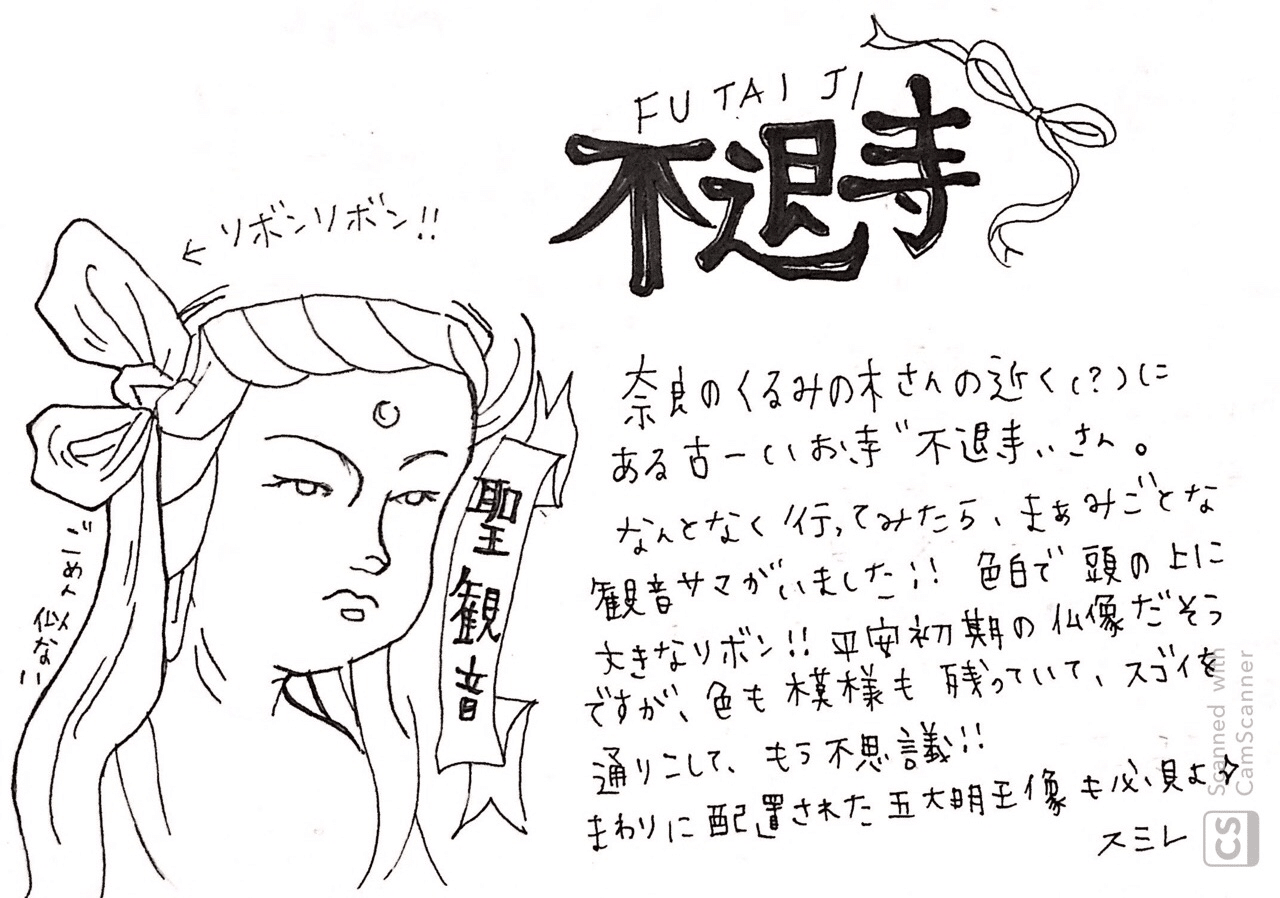 FUTAIJI
不退寺
← リボンリボン!!
聖観音
ごめん
似ない
奈良のくるみの木さんの近く(?)に
ある古ーいお寺"不退寺"さん。
なんとなく行ってみたら、まぁみごとな
観音サマがいました!! 色白で頭の上に
大きなリボン!! 平安初期の仏像だそう
ですが、色も模様も残っていて、スゴイを
通りこして、もう不思議!!
まわりに配置された五大明王像も必見よ☆
スミレ
Scanned with
CamScanner
CS